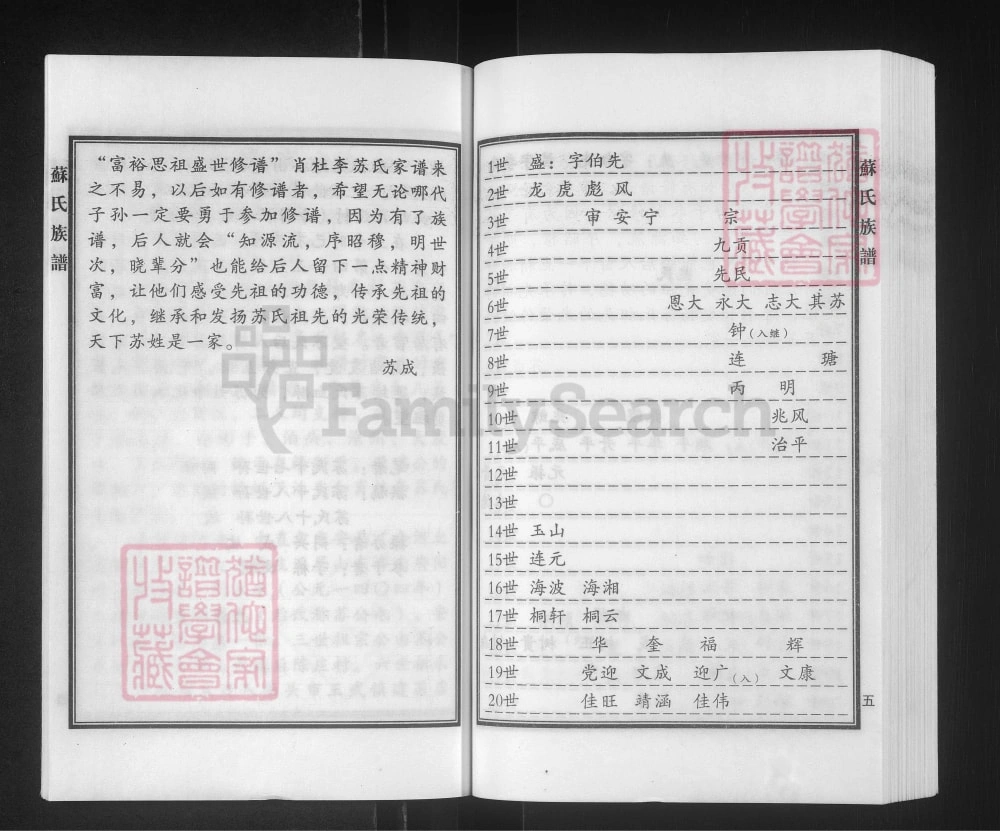 蘇氏族譜
“富裕思祖盛世修谱”肖杜李苏氏家谱来
之不易，以后如有修谱者，希望无论哪代
子孙一定要勇于参加修谱，因为有了族
谱，后人就会“知源流，序昭穆，明世
次，晓辈分”也能给后人留下一点精神财
富，让他们感受先祖的功德，传承先祖的
文化，继承和发扬苏氏祖先的光荣传统，
天下苏姓是一家。
苏成
1世 盛：字伯先
2世 龙 虎 彪 风
3世 审 安 宁 宗
4世 九贡
5世 先民
6世 恩大 永大 志大 其苏
7世 钟(入继)
8世 连 瑭
9世 丙 明
10世 兆风
11世 治平
12世
13世
14世 玉山
15世 连元
16世 海波 海湘
17世 桐轩 桐云
18世 华 奎 福 辉
19世 党迎 文成 迎广(入) 文康
20世 佳旺 靖涵 佳伟
蘇氏族譜
五
FamilySearch